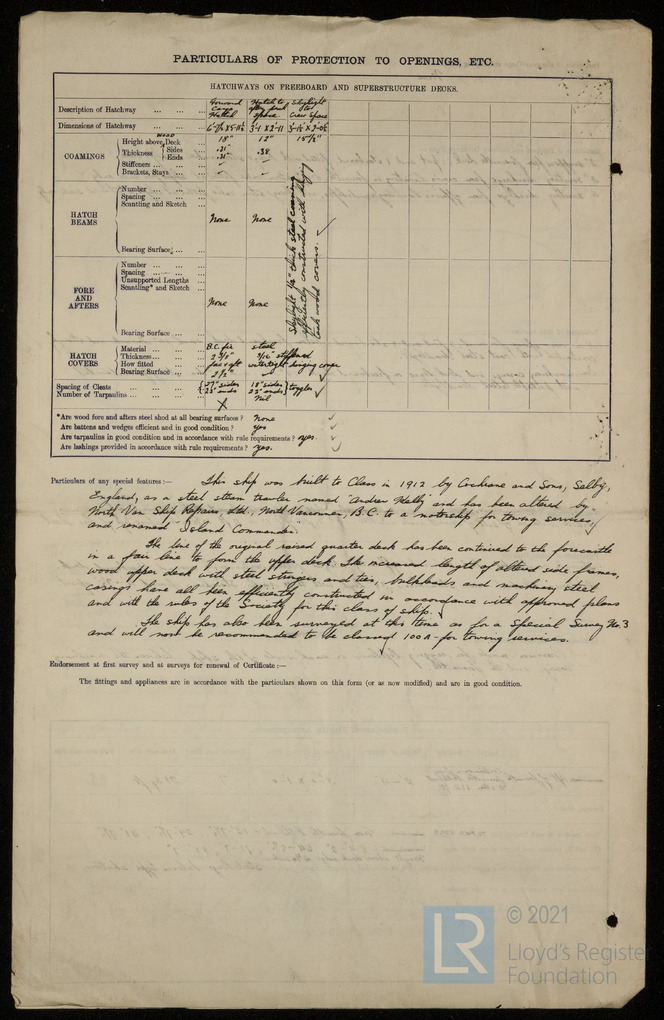 PARTICULARS OF PROTECTION TO OPENINGS, ETC.
HATCHWAYS ON FREEBOARD AND SUPERSTRUCTURE DECKS.
Description of Hatchway ... ... ... Forward Cargo Hatch Hatch to space Skylight to Crew Space
Dimensions of Hatchway ... ... ...
COAMINGS
WOOD
Height above Deck ... 18" 12" 15½"
Thickness { Sides ... .31" .38
Ends ... .31"
Stiffeners ... ... ... ✓ ✓
Brackets, Stays ... ... ✓ ✓
HATCH BEAMS
Number ... ... ...
Spacing ... ... ...
Scantling and Sketch ... None None
Bearing Surface ... ...
Skylight 1/4" thick steel coaming
efficiently constructed with
teak wood covers. ✓
FORE AND AFTERS
Number ... ... ...
Spacing ... ... ...
Unsupported Lengths ...
Scantling* and Sketch ... None None
Bearing Surface ... ...
HATCH COVERS
Material ... ... ... B.C. fir steel
Thickness ... ... ... stiffened
How fitted ... ... fore & aft watertight hinging cover
Bearing Surface ... ... 2½" ✓
Spacing of Cleats ... ... { 27" sides 18" sides } toggles ✓
23" ends 23" ends
Number of Tarpaulins ... ... X Nil
*Are wood fore and afters steel shod at all bearing surfaces ? None ✓
Are battens and wedges efficient and in good condition ? yes ✓
Are tarpaulins in good condition and in accordance with rule requirements ? yes ✓
Are lashings provided in accordance with rule requirements ? yes. ✓
Particulars of any special features :— This ship was built to Class in 1912 by Cochrane and Sons, Selby,
England, as a steel steam trawler named "Andrew Kelly" and has been altered by
North Van Ship Repairs, Ltd., North Vancouver, B.C. to a motorship for towing services,
and renamed "Island Commander".
The line of the original raised quarter deck has been continued to the forecastle
in a fair line to form the upper deck. The increased length of altered side frames,
wood upper deck with steel stringers and ties, bulkheads and machinery steel
casings have all been efficiently constructed in accordance with approved plans
and with the rules of the Society for this class of ship.
The ship has also been surveyed at this time as for a Special Survey No. 3
and will now be recommended to be classed 100A - for towing services.
Endorsement at first survey and at surveys for renewal of Certificate :—
The fittings and appliances are in accordance with the particulars shown on this form (or as now modified) and are in good condition.
LR
© 2021
Lloyd's Register
Foundation